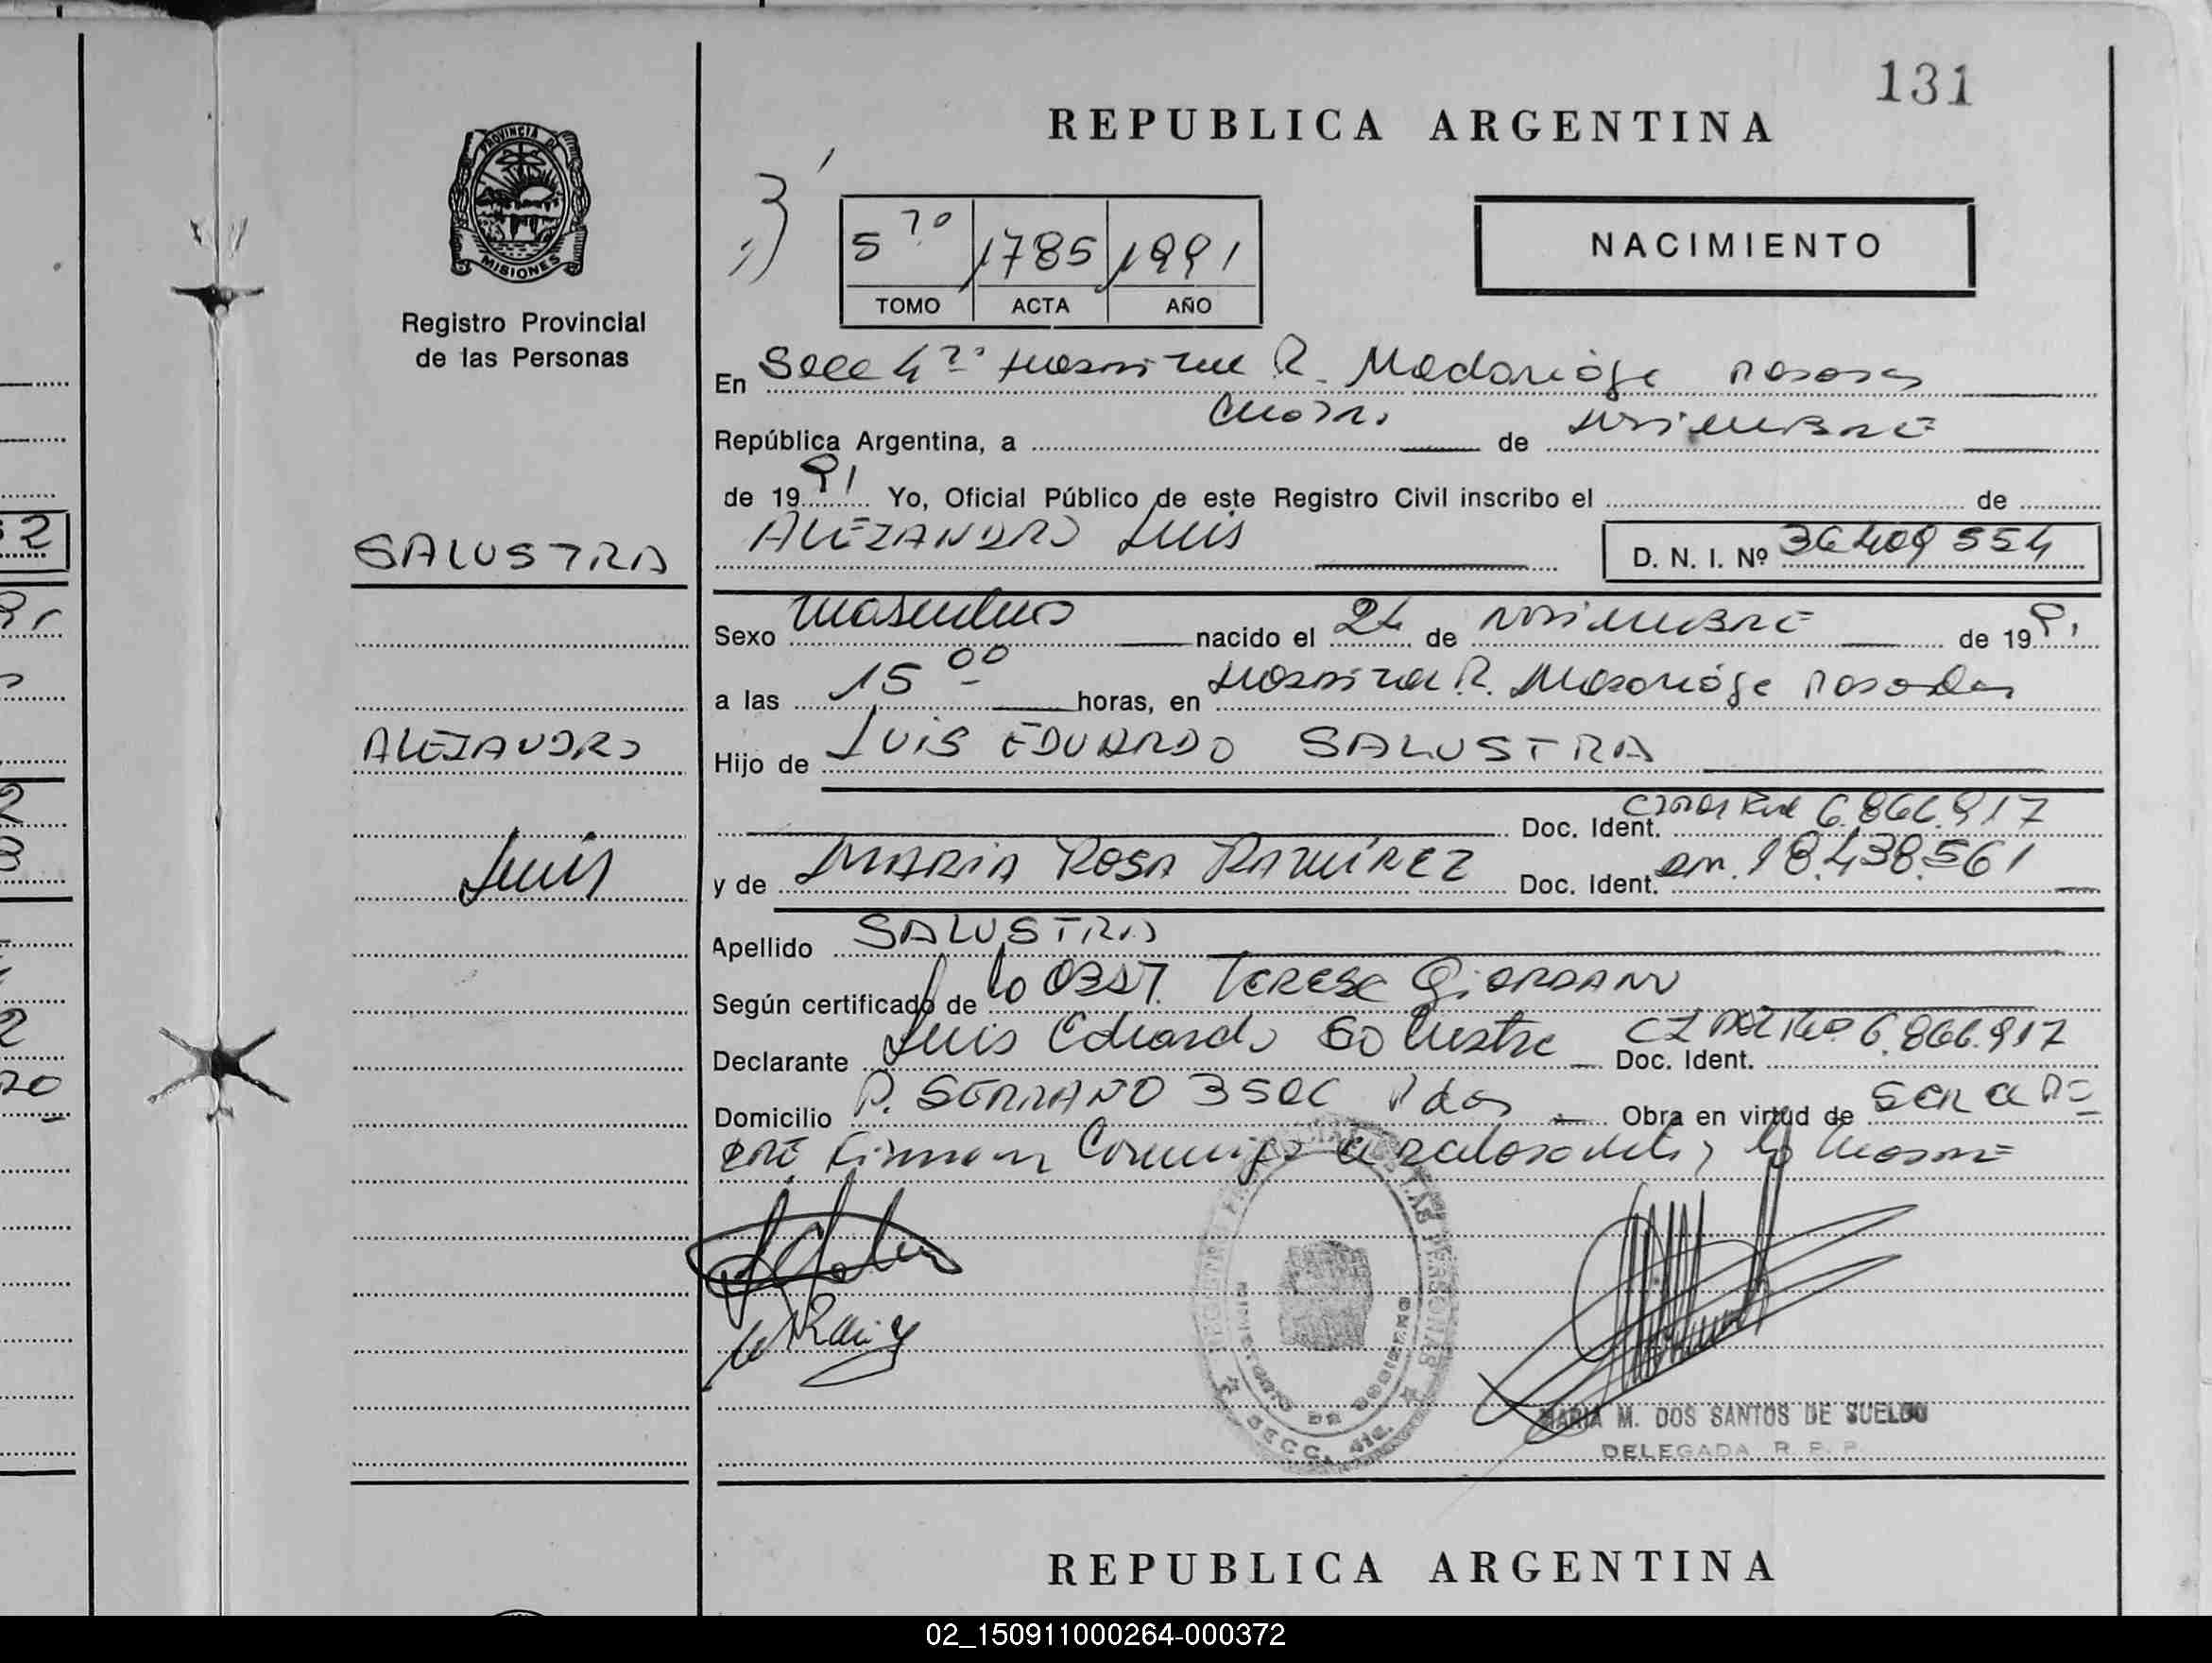 131
REPUBLICA ARGENTINA
PROVINCIA DE
MISIONES
Registro Provincial
de las Personas
5to 1785 1991
TOMO ACTA AÑO
NACIMIENTO
En Secc 4ta Hospital R. Madariaga Posadas
República Argentina, a de
de 1991 Yo, Oficial Público de este Registro Civil inscribo el de
ALEJANDRO Luis
D. N. I. Nº 36409554
SALUSTRA
Sexo masculino nacido el 24 de noviembre de 1991
a las 15 00 horas, en Hospital R. Madariaga Posadas
ALEJANDRO
Hijo de LUIS EDUARDO SALUSTRA
Doc. Ident. 6.866.917
Luis
y de MARIA ROSA RAMÍREZ Doc. Ident. 18.438.561
Apellido SALUSTRA
Según certificado de la OBST. TERESA GIORDANO
Declarante Luis Eduardo Salustra Doc. Ident. 6.866.917
Domicilio P. SERRANO Pdas Obra en virtud de ser el pa
dre Firman conmigo el y la madre
MINISTERIO DE GOBIERNO
SECC. 4ta.
MARIA M. DOS SANTOS DE SUELDO
DELEGADA R. P. P.
REPUBLICA ARGENTINA
02_150911000264-000372